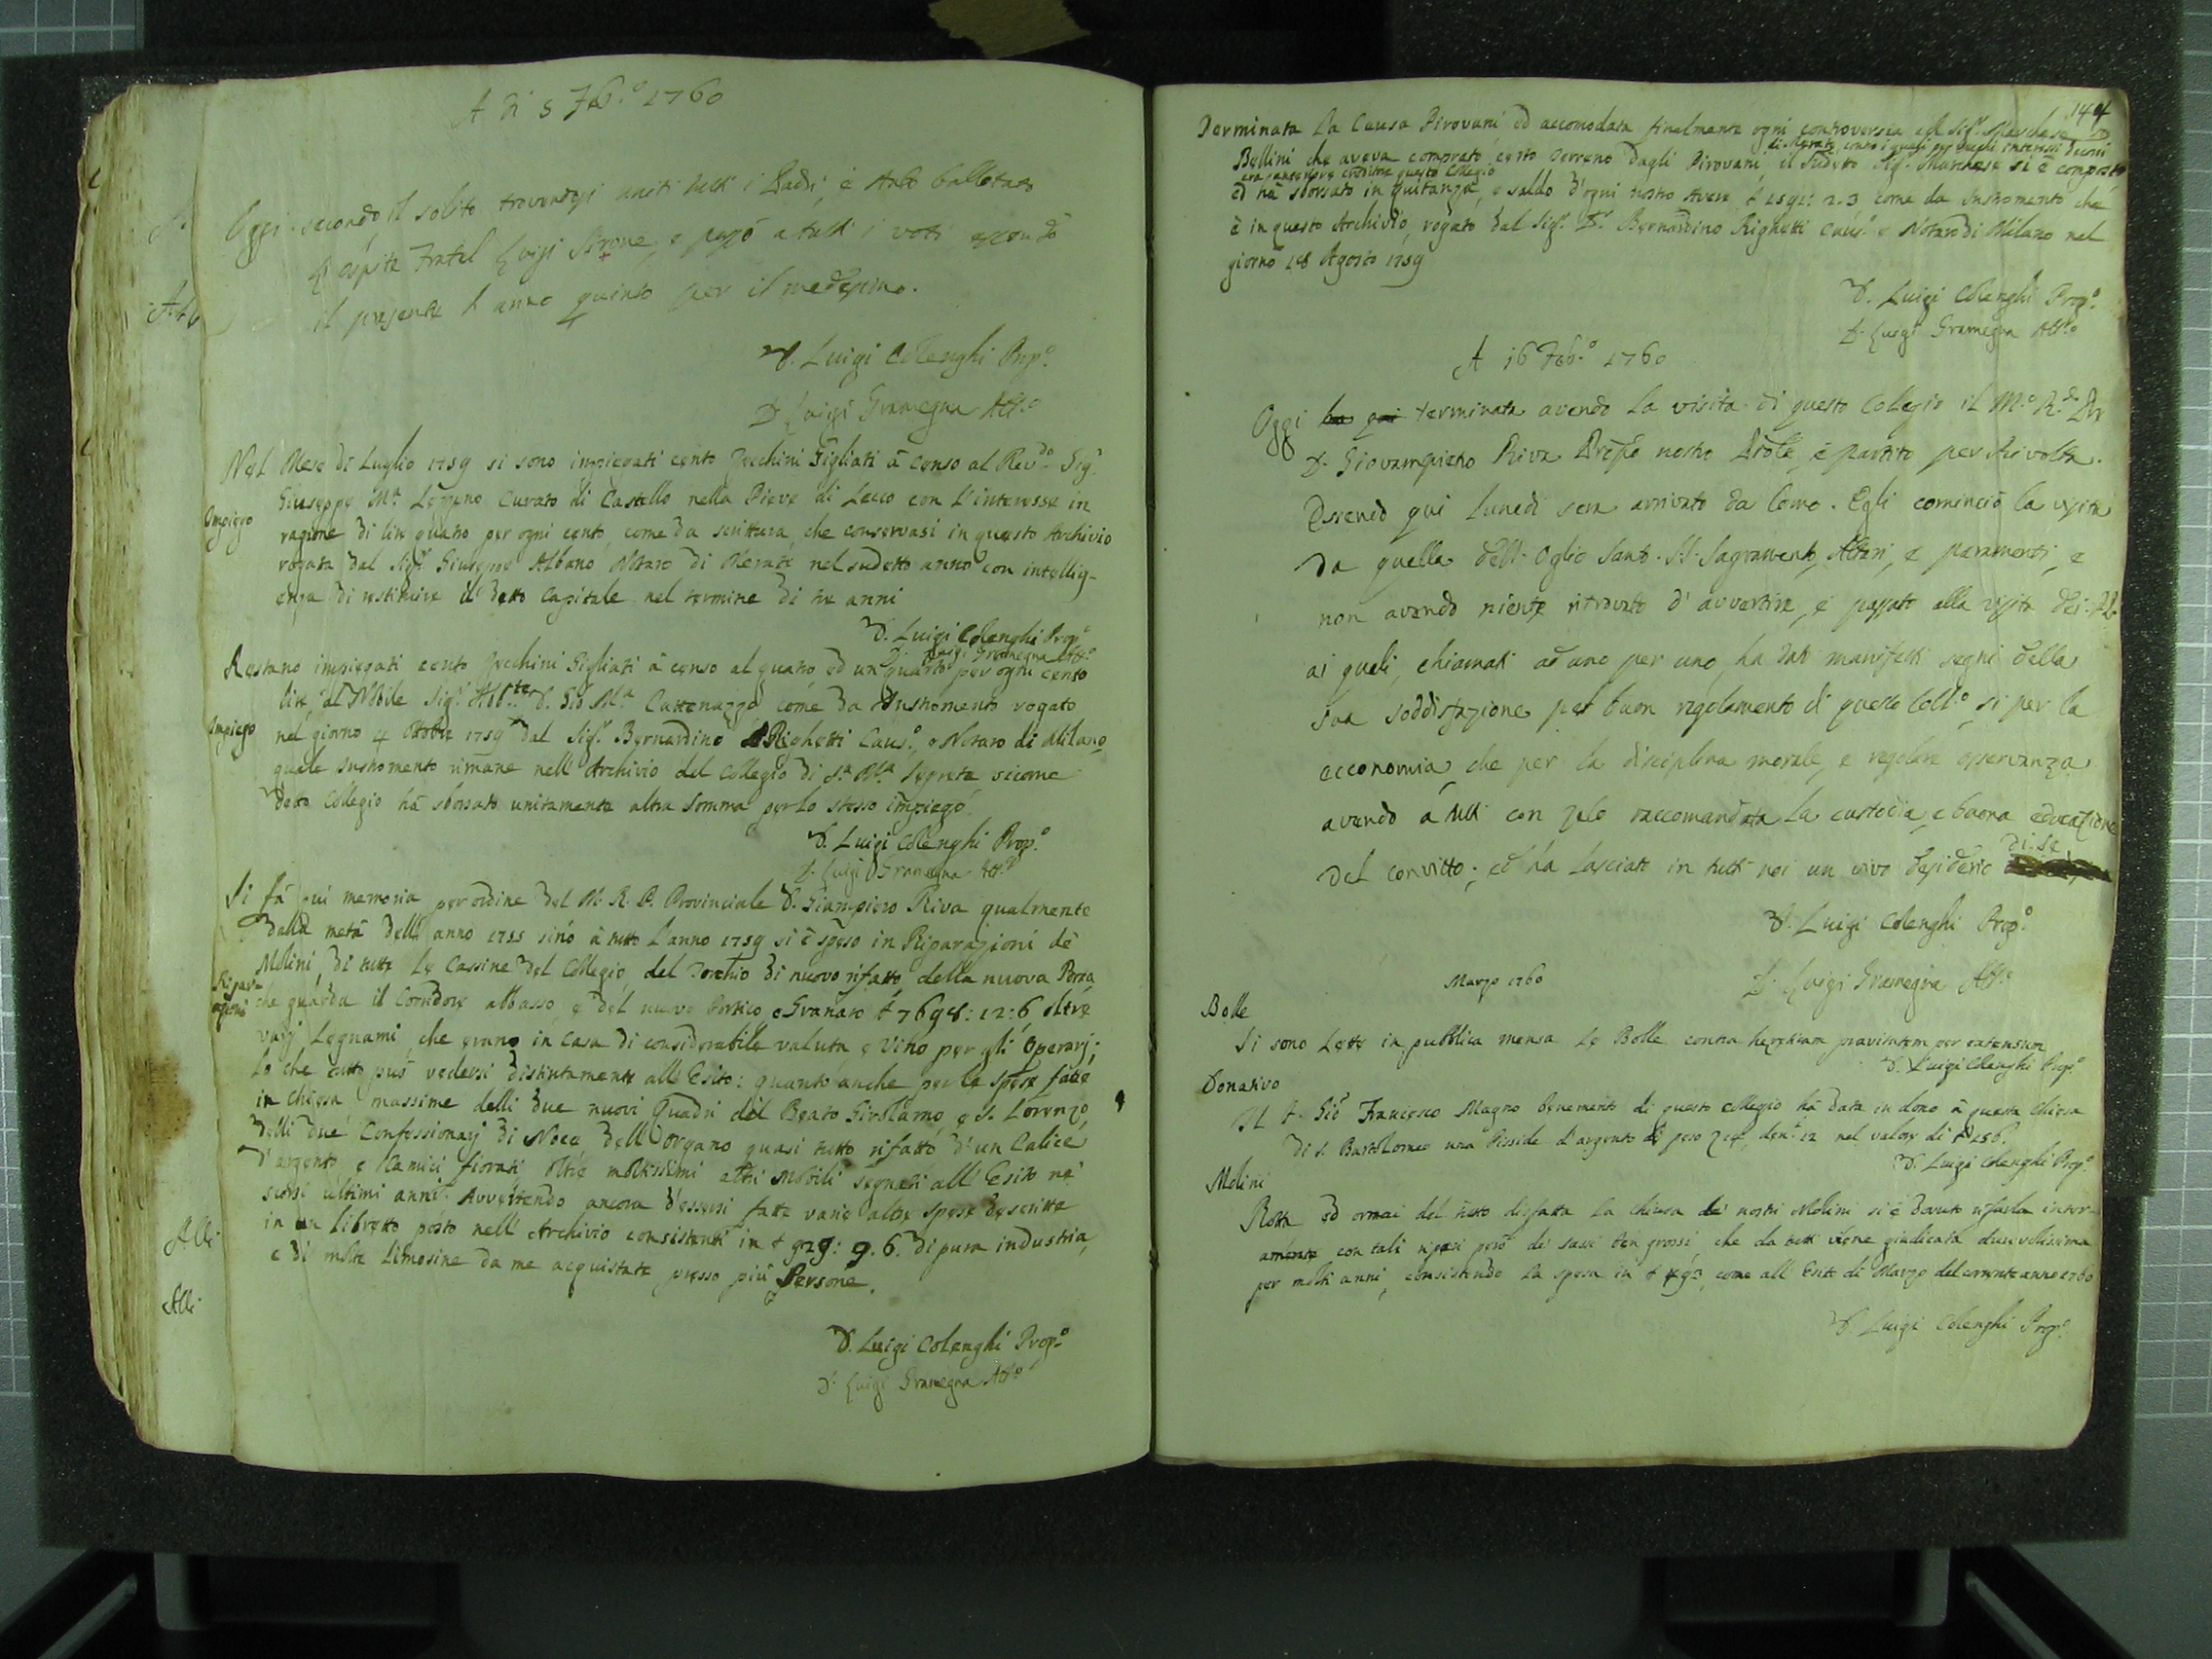 A dì 5 Feb.º 1760
Oggi secondo il solito trovandosi uniti tutti i Padri, è stato ballotato
l'ospite Fratel Luigi Sirone, e passò a tutti i voti essendo
il presente l'anno quinto per il medesimo.
D. Luigi Colenghi Prop.º
D. Luigi Gramegna Att.º
Nel Mese di Luglio 1759 si sono impiegati cento Zecchini Gigliati à Censo al Rev.do Sig.r
Impiego
Giuseppe M.a Curato di Castello nella Pieve di Lecco con L'interesse in
ragione di lire quatro per ogni cento, come da scrittura, che conservasi in questo Archivio
rogata dal Sig.r Giuseppe Albano Notaro di Merate nel sudetto anno con intellig-
enza di restituire il detto Capitale nel termine di tre anni
D. Luigi Colenghi Prop.º
D. Luigi Gramegna Att.º
Restano impiegati cento Zecchini Gigliati à censo al quatro, ed un quarto per ogni cento
Impiego
lire, al Nobile Sig.r Abb.te D. Giõ M.a Cattenazzo come da Instromento rogato
nel giorno 4 Ottobre 1759 dal Sig.r Bernardino Righetti Caus.º, e Notaro di Milano
quale Instromento rimane nell'Archivio del Collegio di S.ta M.a Segreta, sicome
detto Collegio hà sborsato unitamente altra somma per lo stesso impiego.
D. Luigi Colenghi Prop.º
D. Luigi Gramegna Att.º
Si fà qui memoria per ordine del M. R. P. Provinciale D. Giampiero Riva qualmente
dalla metà dell'anno 1755 sinò à tutto L'anno 1759 si è speso in Riparazioni de'
Molini, di tutte Le Cassine del Collegio, del Torchio di nuovo rifatto, della nuova Porta,
Ripar-
azioni
che guarda il Corridore abbasso, e del nuovo Portico e Granaro £ 7698: 12: 6 oltre
varj Legnami, che erano in Casa di considerabile valuta e Vino per gli Operarj;
Lo che tutto può vedersi distintamente all'Esito: quanto anche per le spese fatte
in Chiesa massime delli due nuovi Quadri del Beato Girolamo, e S. Lorenzo,
delli due Confessionarj di Noce dell'organo quasi tutto rifatto, d'un Calice
d'argento, e Camici fiorati, oltre moltissimi altri Mobili segnati all'Esito ne'
scorsi ultimi anni. Avvertendo ancora d'essersi fatte varie altre spese descritte
in un libretto posto nell'Archivio consistenti in £ 929: 9. 6. di pura industria,
e di molte Limosine da me acquistate presso più Persone.
D. Luigi Colenghi Prop.º
D. Luigi Gramegna Att.º
Alli
Alli
144
Terminata La Causa Pirovani ed accomodata finalmente ogni controversia col Sig.r Marchese
di Merate, conto i quali per quegli interessi decorsi
Bellini che aveva comprato certo terreno dagli Pirovani, il sudetto Sig.r Marchese si è composto,
era anteriore creditore questo Collegio
ed hà sborsato in quitanza, e saldo d'ogni nostro Avere £ 1591: 2. 3 come da Instromento che
è in questo Archivio, rogato dal Sig.r D.r Bernardino Righetti Caus.º e Notaro di Milano nel
giorno 18 Agosto 1759
D. Luigi Colenghi Prop.º
D. Luigi Gramegna Att.º
A 16 Feb.º 1760
Oggi terminata avendo la visita di questo Colegio il M.º R.do Pre
D. Giovampietro Riva nostro Prõle, è partito per Rivolta.
Essendo qui lunedì sera arrivato da Como. Egli cominciò la visita
da quella dell'Oglio Santo. SS. Sagramento, Altari, e paramenti, e
non avendo niente ritrovato d'avvertire, è passato alla visita dei PP.
ai quali, chiamati ad uno per uno, ha dati manifesti segni della
sua soddisfazione pel buon regolamento di questo Coll.º, si per la
economia, che per la disciplina morale, e regolare osservanza
avendo a tutti con zelo raccomandata la custodia, e buona educazione
del convitto; ed ha lasciato in tutti noi un vivo desiderio di se
D. Luigi Colenghi Prop.º
D. Luigi Gramegna Att.º
Marzo 1760
Bolle
Si sono Lette in pubblica mensa Le Bolle contra hereticam pravitatem per extensum
D. Luigi Colenghi Prop.º
Donativo
Il P. Giõ Francesco Magno benemerito di questo Collegio hà data in dono à questa Chiesa
di S. Bartolomeo una Pisside d'argento di peso 14, den. 12 nel valore di £ 156.
D. Luigi Colenghi Prop.º
Molini
Rotta ed ormai del tutto disfatta La Chiusa dei nostri Molini si è dovuto rifarla inter-
amente con tali ripari però dei sassi ben grossi, che da tutti viene giudicata durevolissima
per molti anni, consistendo La spesa in £ come all'Esito di Marzo del corrente anno 1760
D. Luigi Colenghi Prop.º